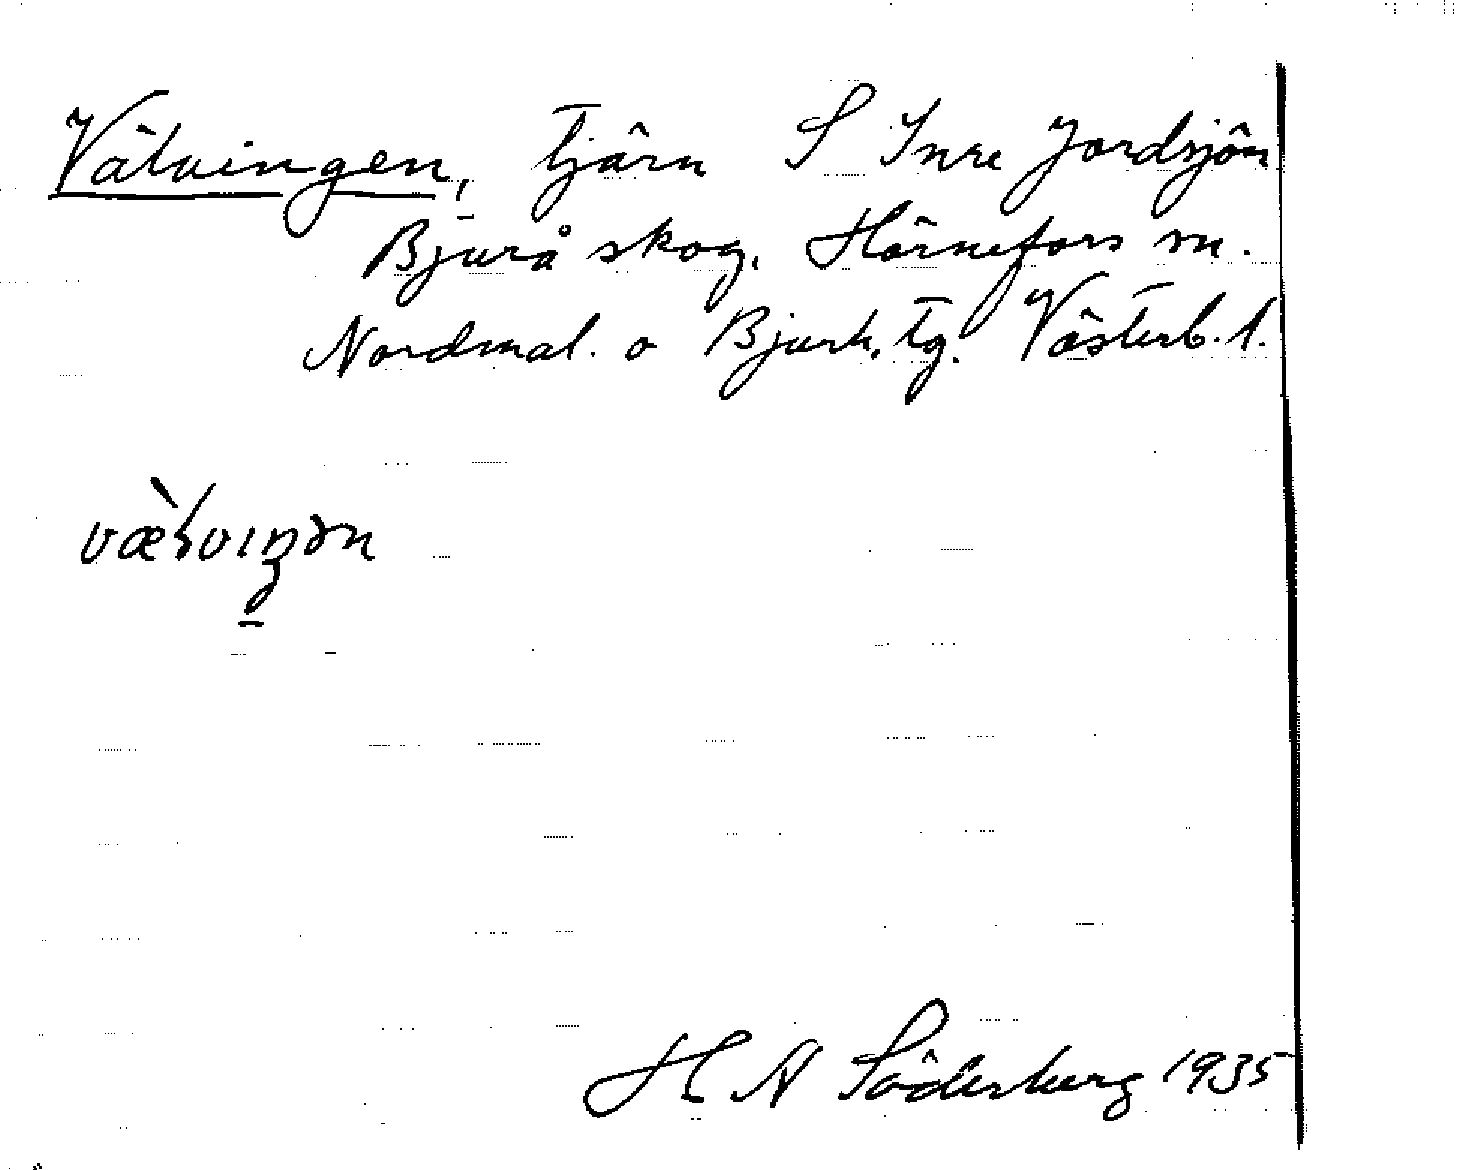 Välvingen, tjärn S Inre Jordsjön
Bjurå skog, Hörnefors sn.
Nordmal. o Bjurh. tg. Västerb. l.
H A Söderberg 1935